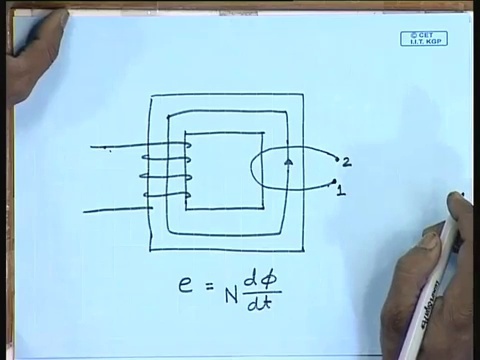 © CET
I.I.T. KGP
2
1
e = N dϕ/dt